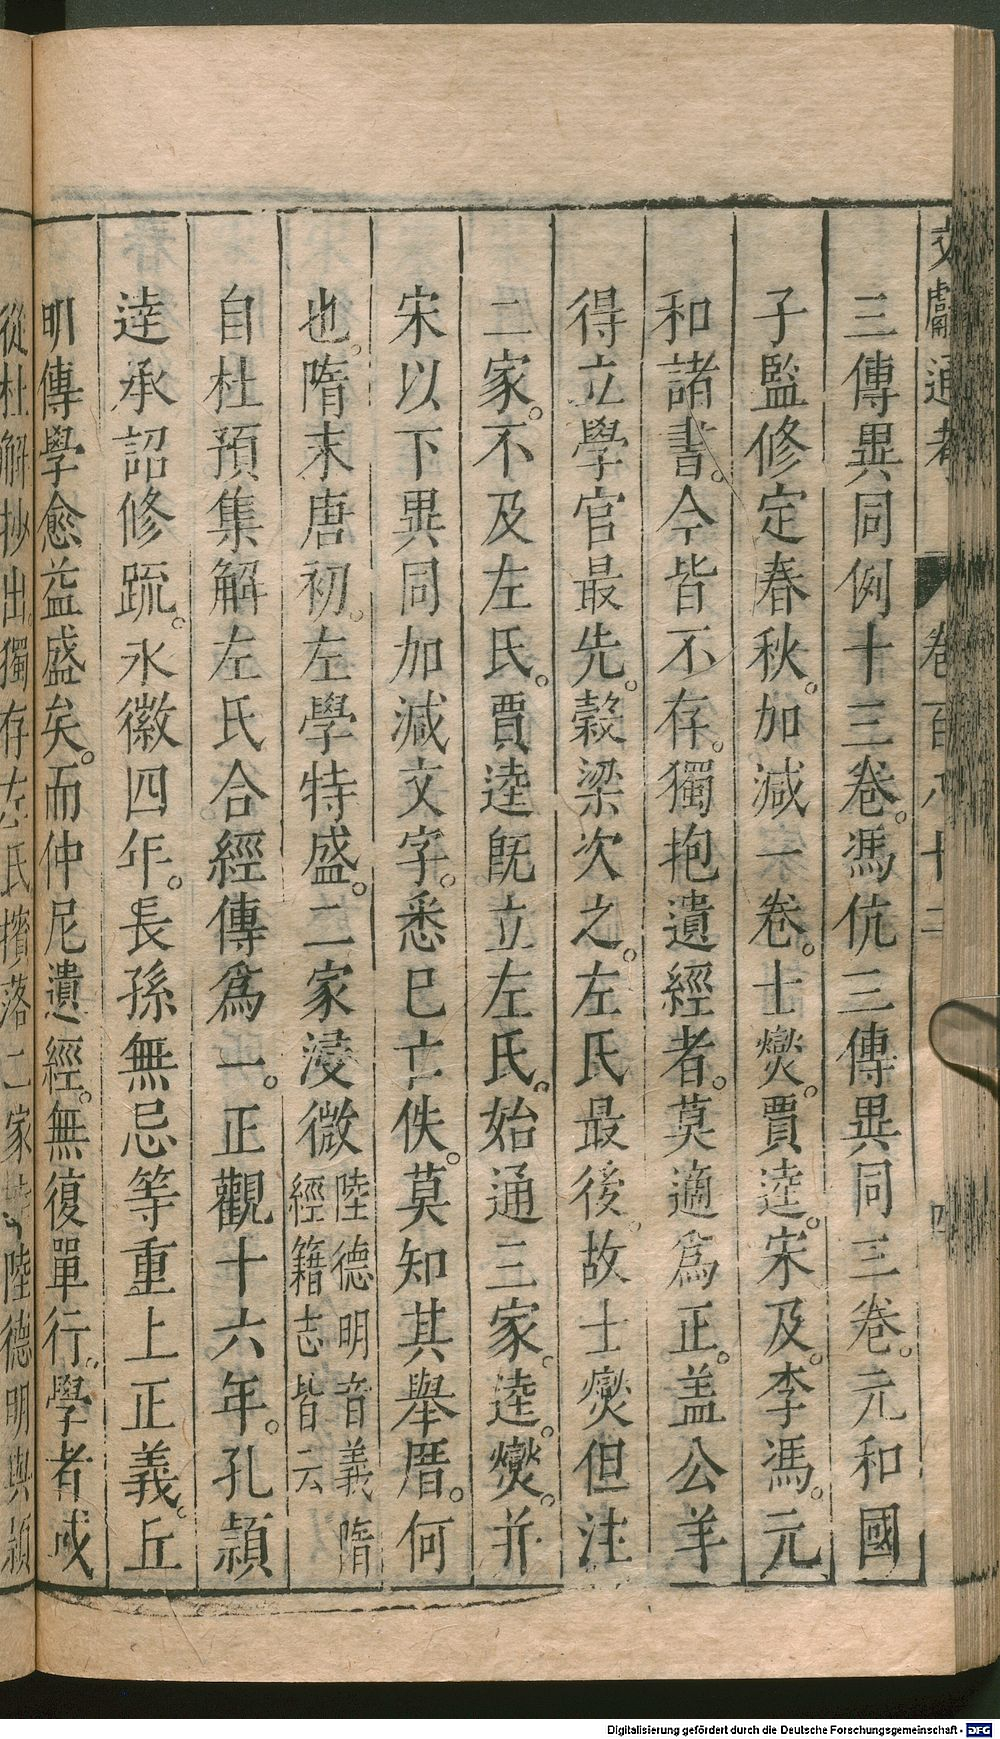 文獻通考 卷百八十二
三傳異同例十三卷。馮伉三傳異同三卷。元和國
子監修定春秋。加減一卷。士燮。賈逵。宋及。李馮。元
和諸書。今皆不存。獨抱遺經者。莫適爲正。盖公羊
得立學官最先。穀梁次之。左氏最後。故士燮但注
二家。不及左氏。賈逵旣立左氏。始通三家。逵。燮。并
宋以下異同加減文字。悉已亡佚。莫知其舉厝。何
也。隋末唐初。左學特盛。二家浸微陸德明音義隋經籍志皆云
自杜預集解左氏合經傳爲一。正觀十六年。孔頴
逹承詔修疏。永徽四年。長孫無忌等重上正義。丘
明傳學愈益盛矣。而仲尼遺經。無復單行。學者或
從杜解抄出。獨存左氏擯落二家 陸德明與頴
Digitalisierung gefördert durch die Deutsche Forschungsgemeinschaft - DFG